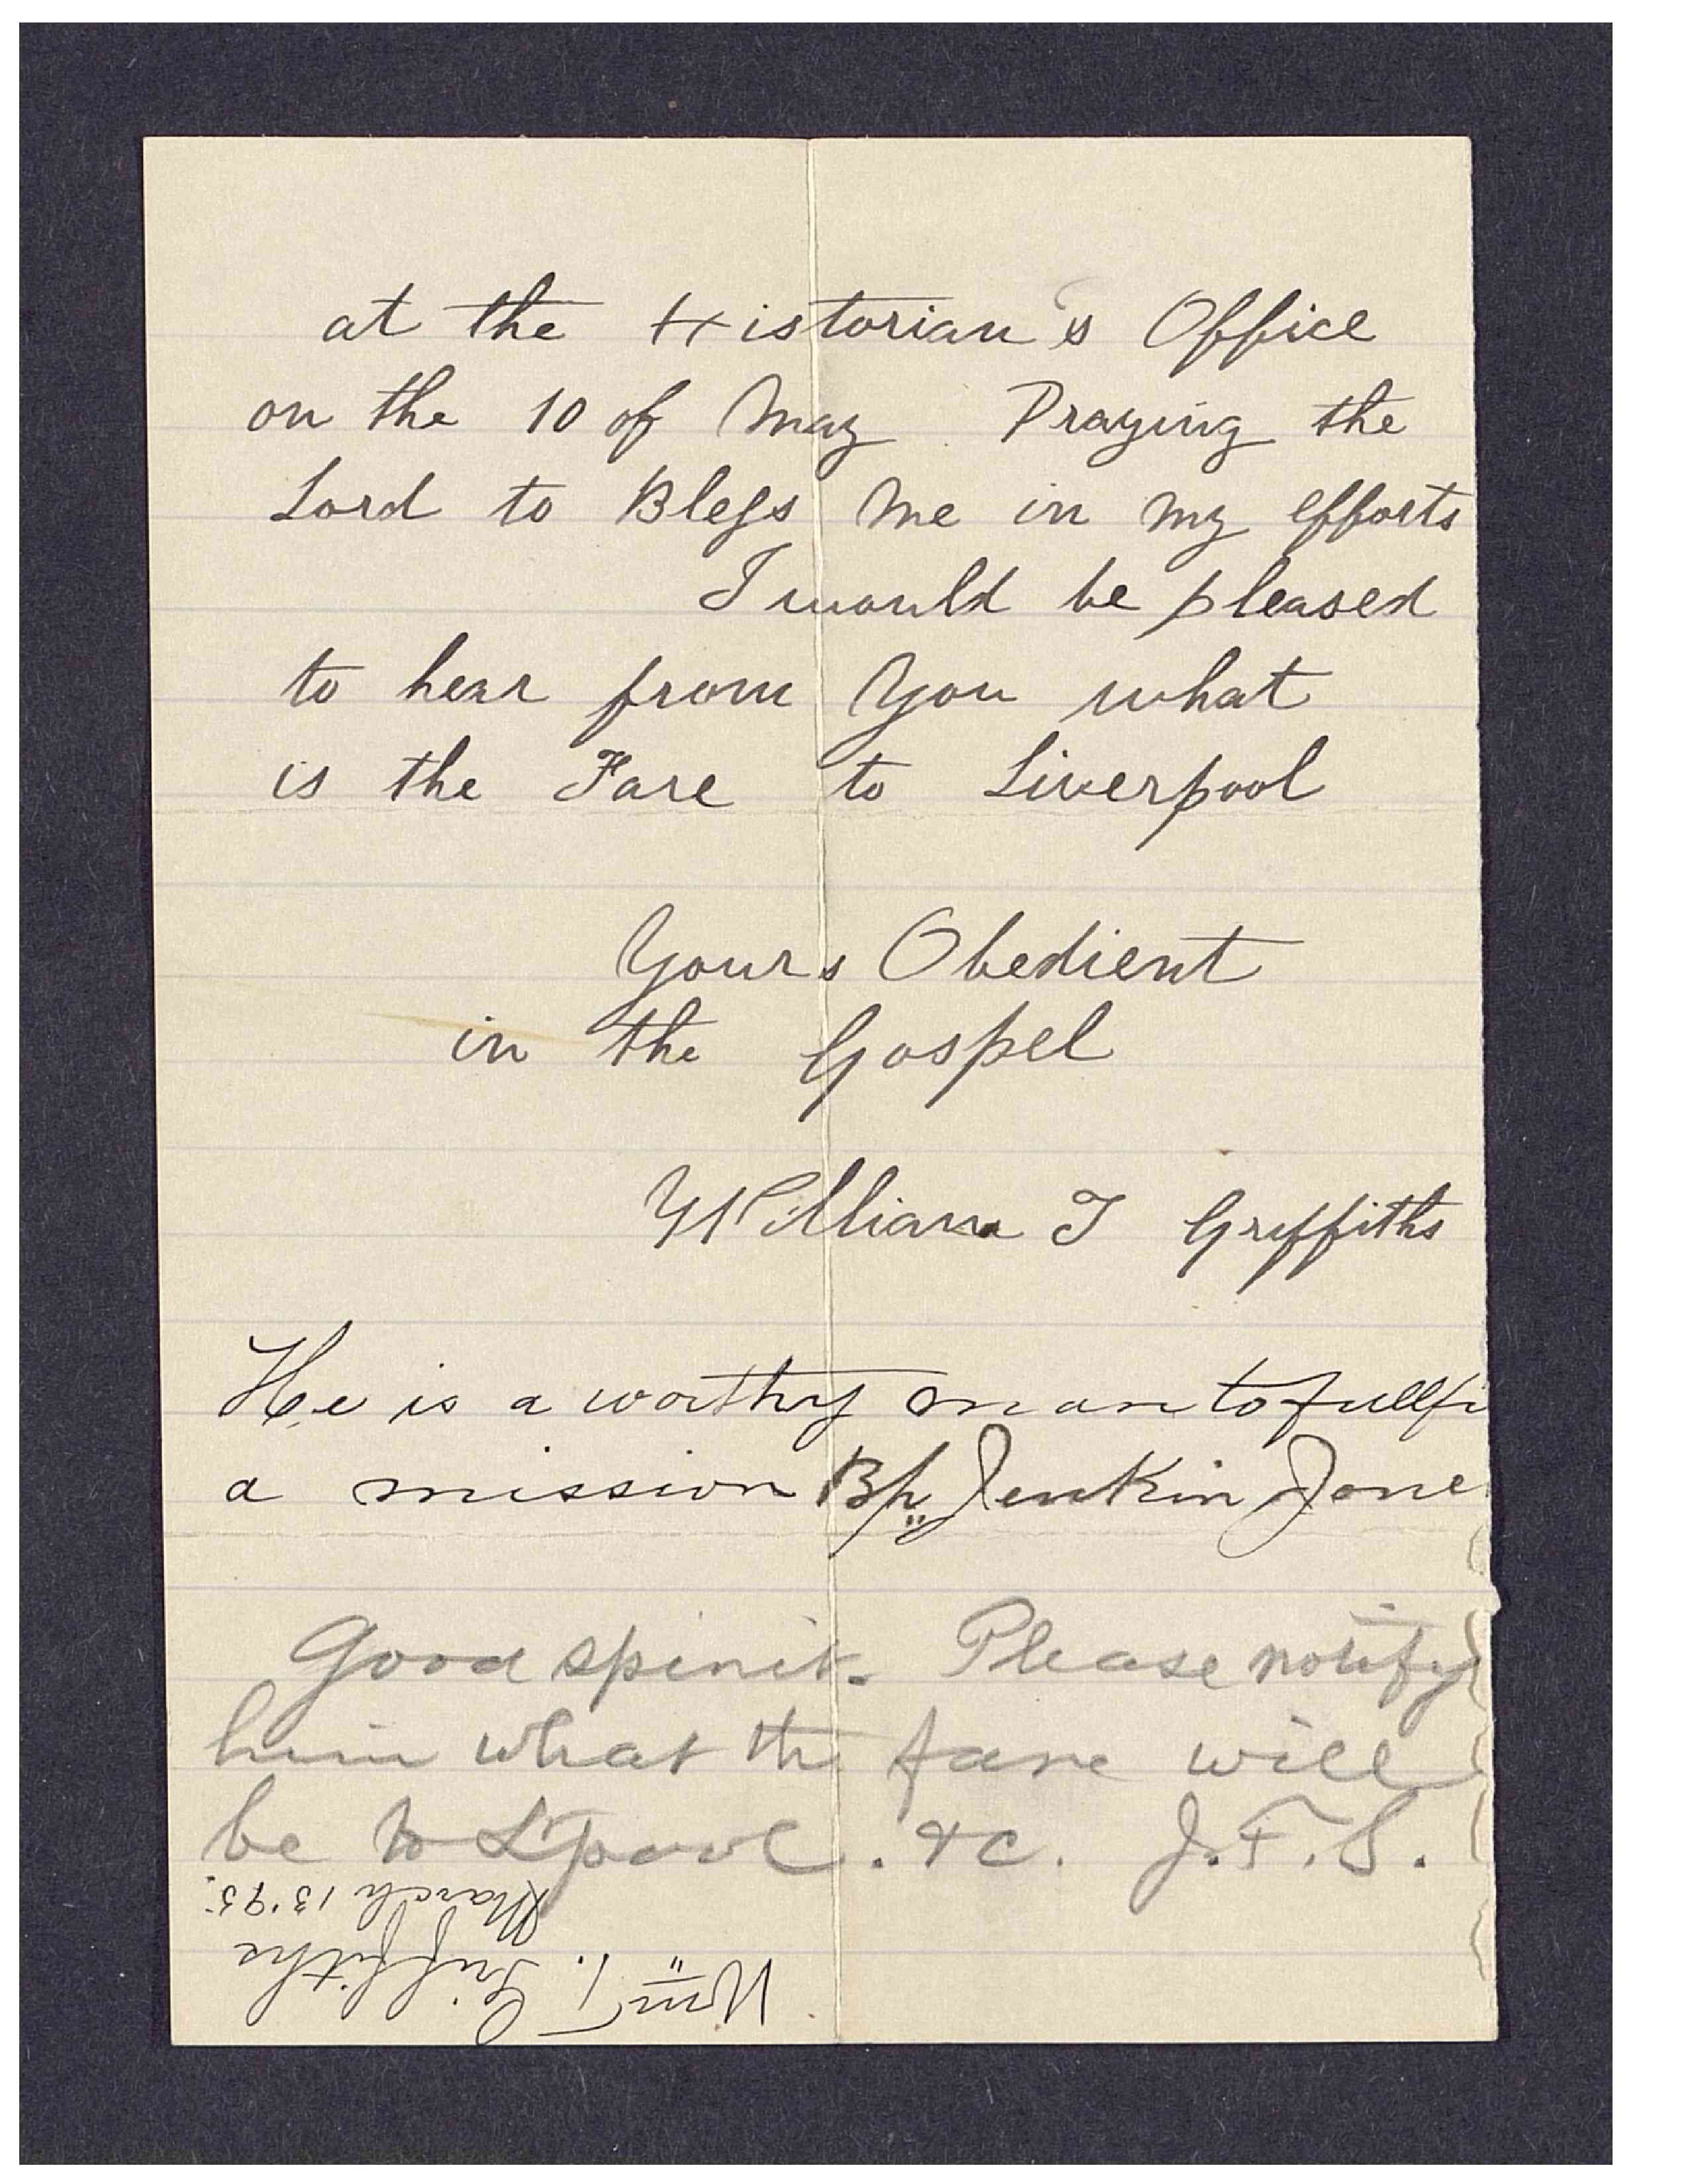 at the Historian's Office
on the 10 of May Praying the
Lord to Bless Me in my efforts
I would be pleased
to hear from You what
is the Fare to Liverpool
Yours Obedient
in the Gospel
William T Griffiths
He is a worthy man to fullfi
a mission Bp Jenkin Jone
Good spirit. Please notify
him what the fare will
be to L'pool. &c. J.F.S.
Wm T. Griffiths
March 13 '95.